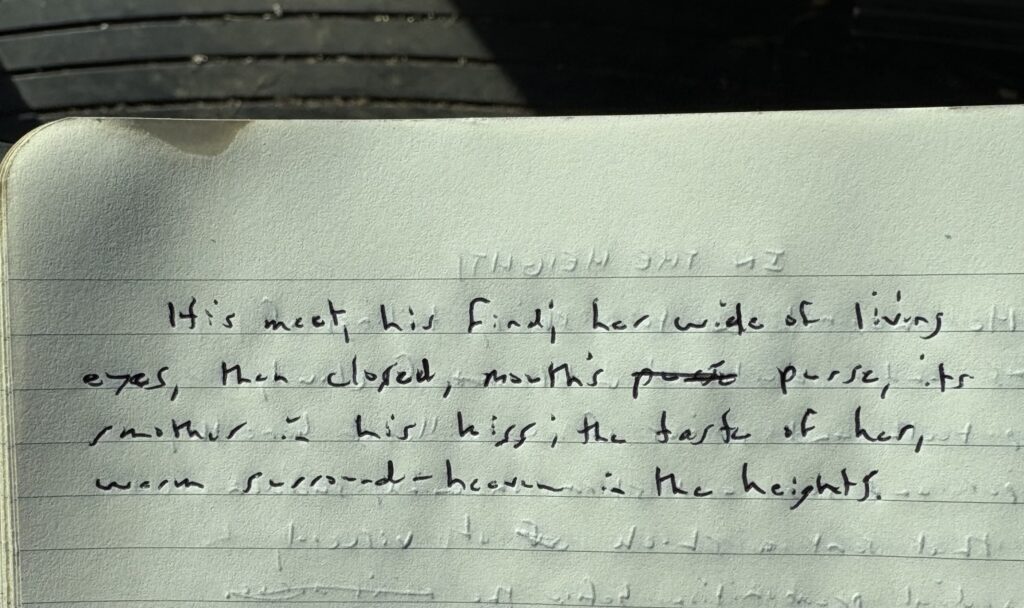 His meet, his find; her wide of living
eyes, then closed, mouth's purse, its
smother in his kiss; the taste of her,
warm surround-heaven in the heights.